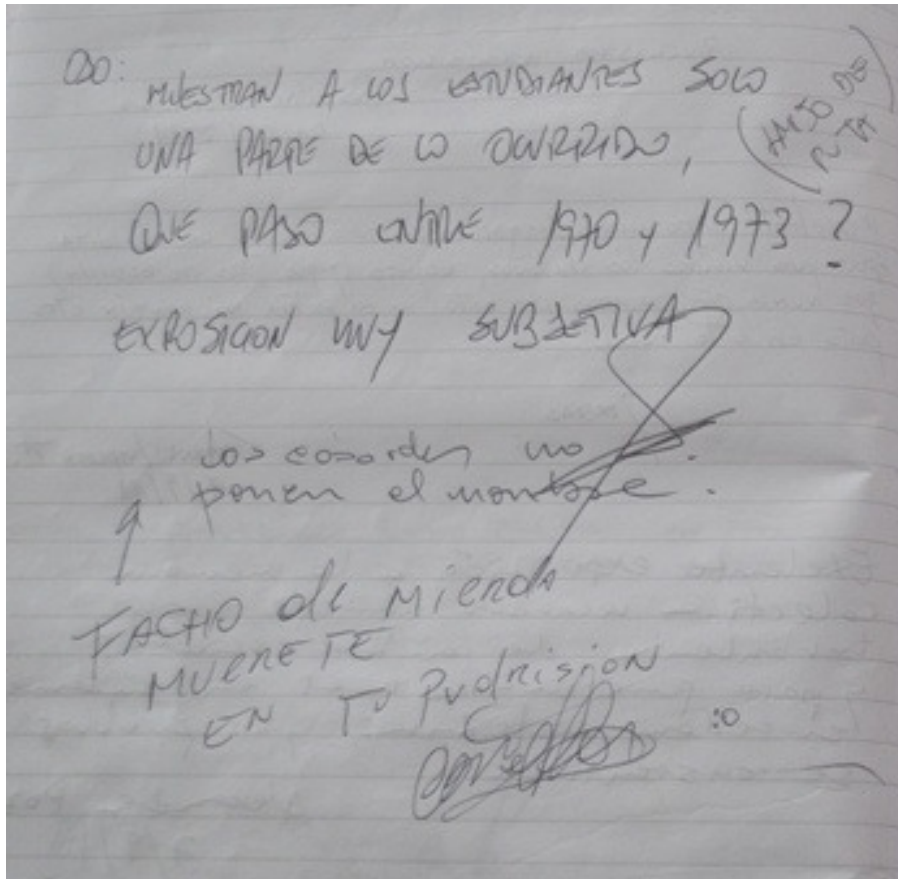 OJO: MUESTRAN A LOS ESTUDIANTES SOLO
UNA PARTE DE LO OCURRIDO,
QUE PASO ENTRE 1970 y 1973 ?
EXPOSICION MUY SUBJETIVA
Los cobardes no
ponen el nombre.
FACHO de mierda
MUERETE
EN TU Pudrision
:o